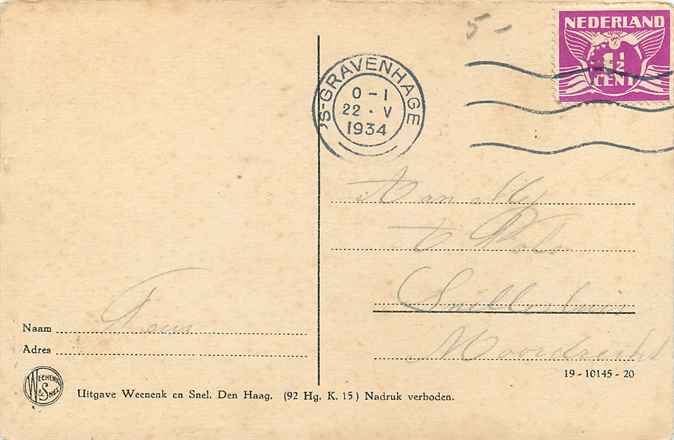 5-
NEDERLAND
1½
CENT
'S-GRAVENHAGE
0-1
22·V
1934
Aan
Moordrecht
Naam
Adres
WEENENK
& SNEL
Uitgave Weenenk en Snel. Den Haag. (92 Hg. K. 15) Nadruk verboden.
19-10145-20